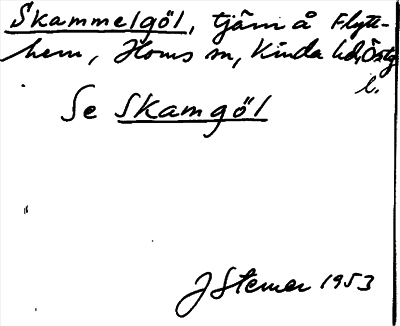 Skammelgöl, tjärn å Flytt-
hem, Horns sn, Kinda hd, Östg
l.
Se Skamgöl
J Stemer 1953